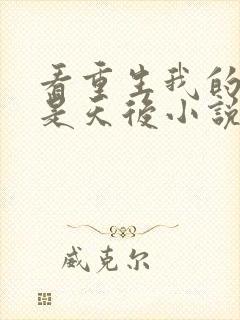 看重生我的
是天後小說
威克尔